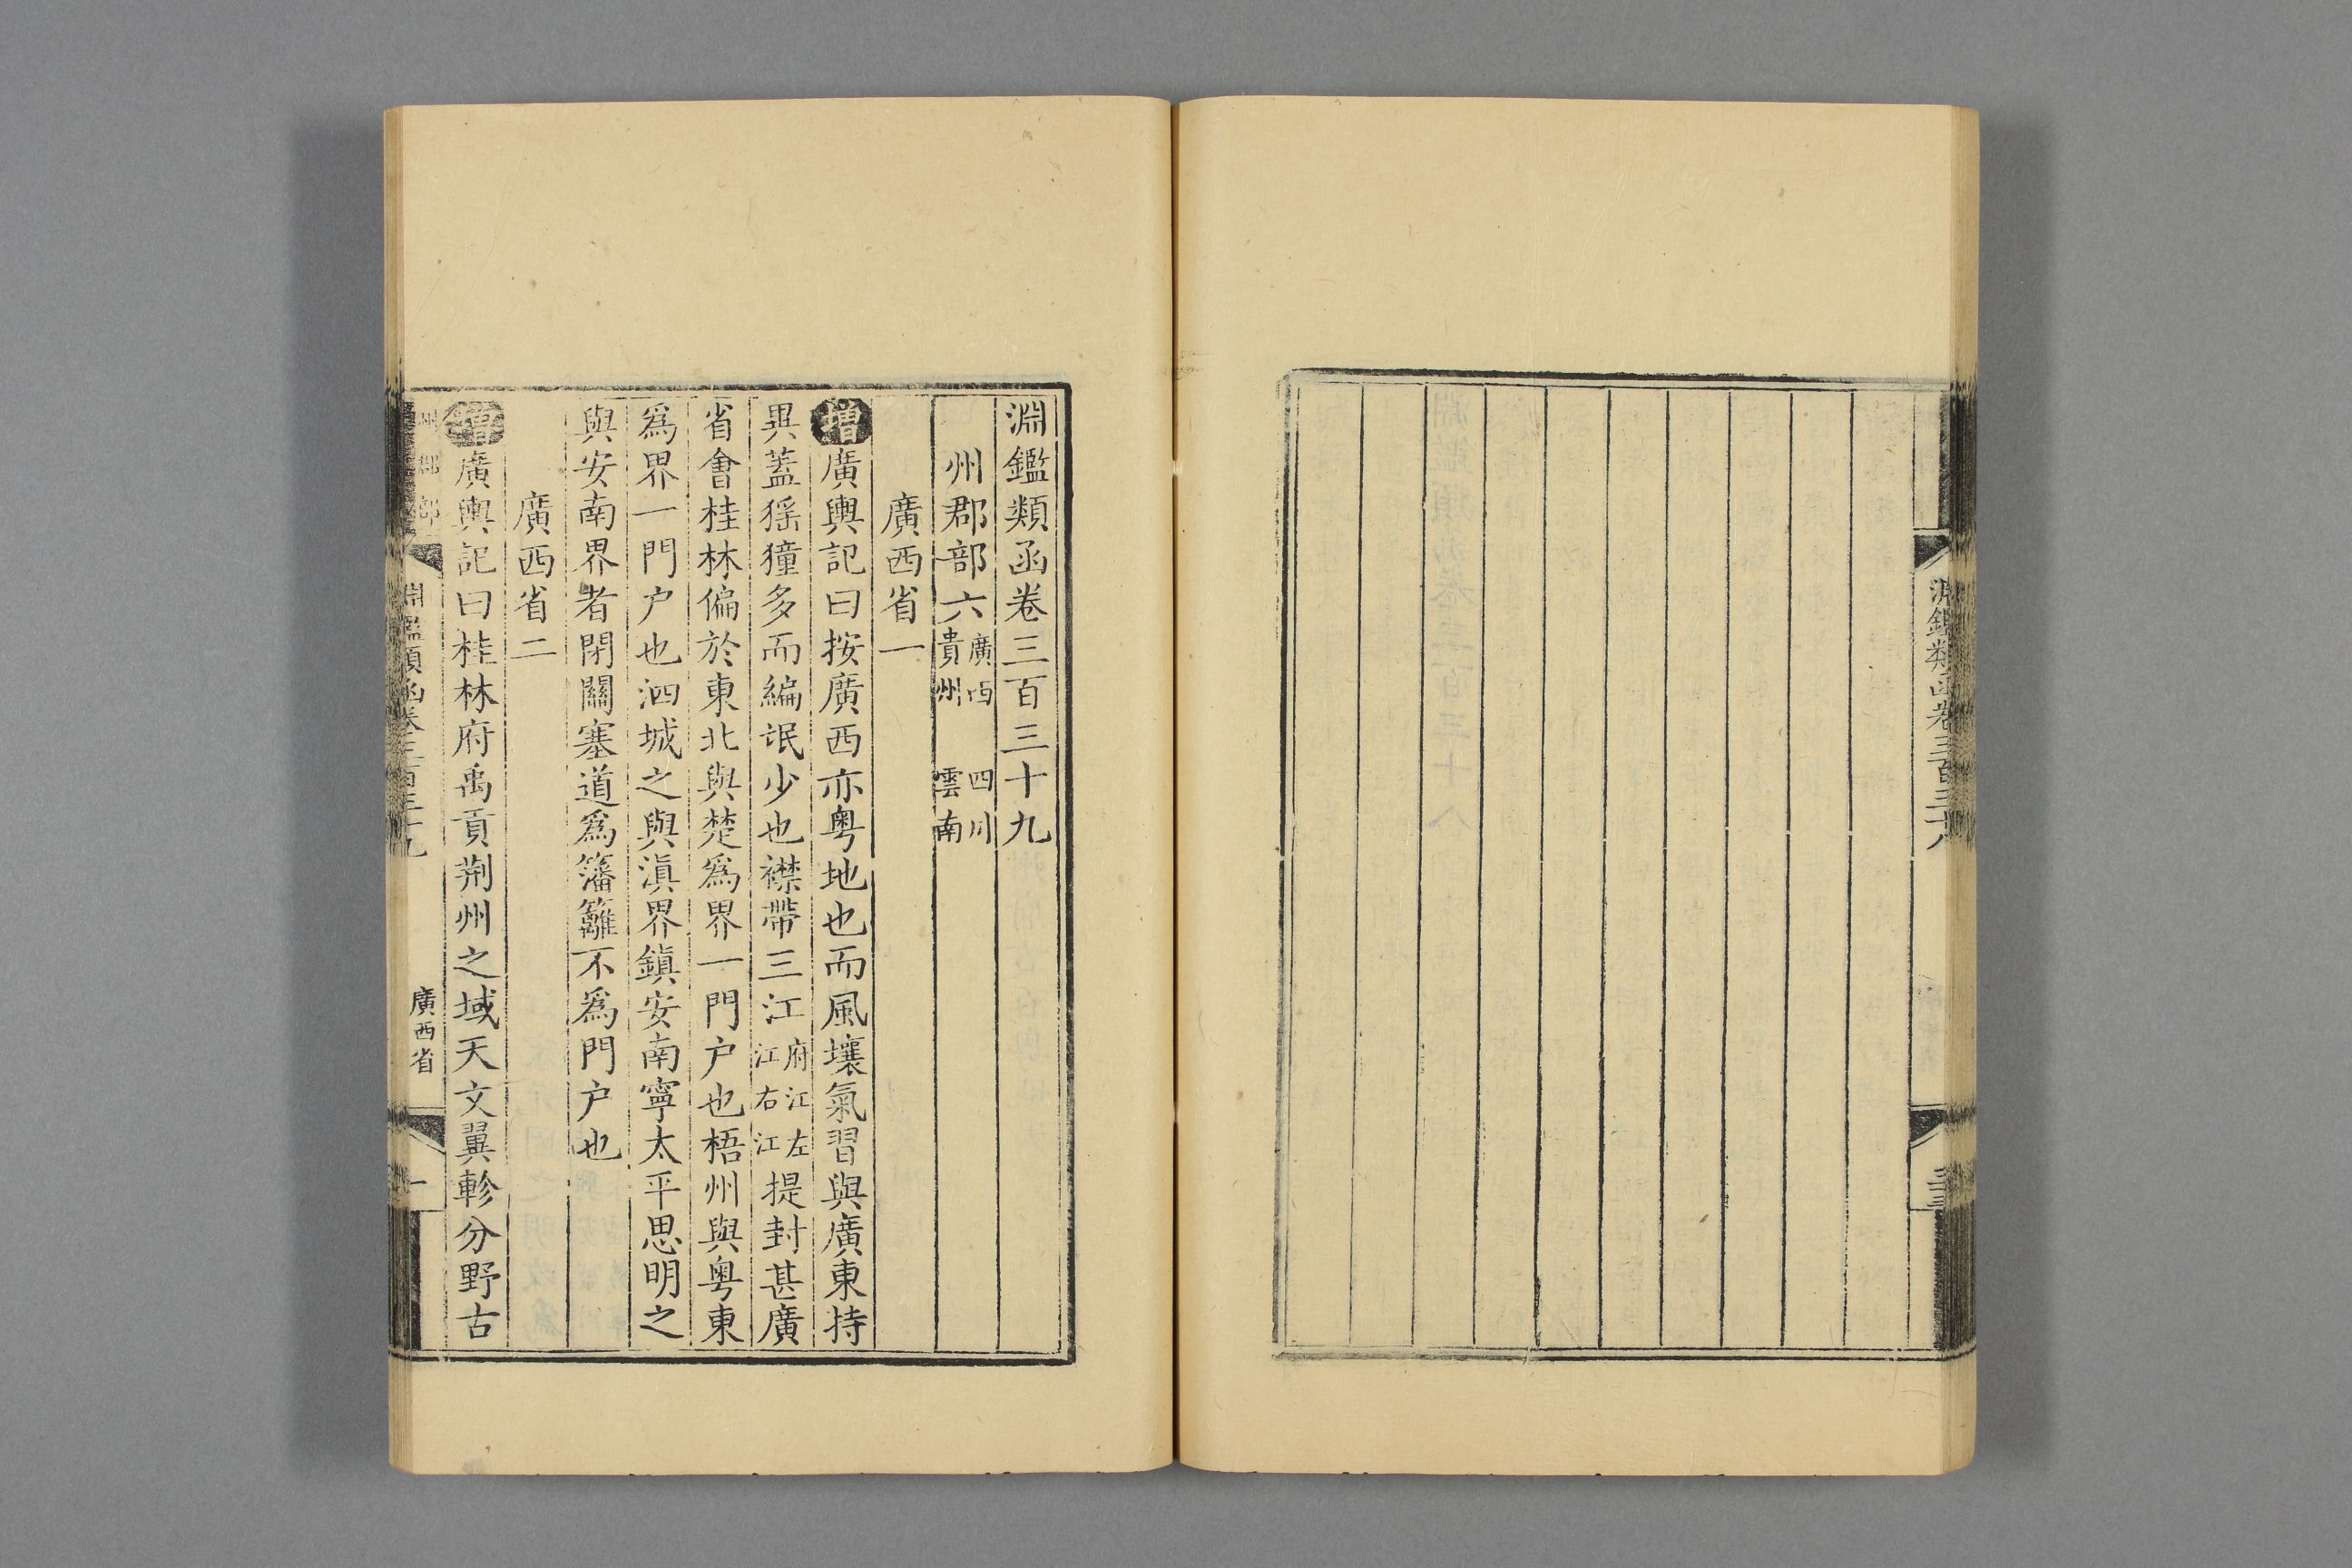 淵鑑類函卷三百三十八
三十三
淵鑑類函卷三百三十九
州郡部六廣西 四川
貴州 雲南
廣西省一
增廣輿記曰按廣西亦粤地也而風壤氣習與廣東持
異蓋猺獞多而編氓少也襟帶三江府江左
江右江提封甚廣
省會桂林偏於東北與楚為界一門户也梧州與粤東
為界一門户也泗城之與滇界鎮安南寧太平思明之
與安南界者閉關塞道為籓籬不為門户也
廣西省二
增廣輿記曰桂林府禹貢荆州之域天文翼軫分野古
淵鑑類函卷三百三十九
廣西省
一